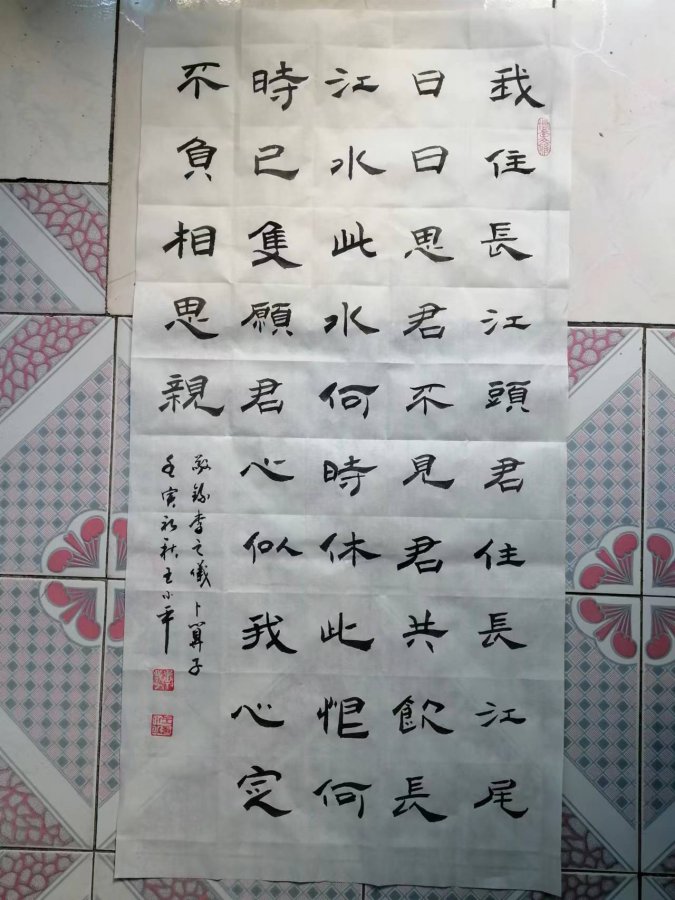 我住長江頭君住長江尾
日日思君不見君共飲長
江水此水何時休此恨何
時已隻願君心似我心定
不負相思親
敬錄李之儀卜算子
壬寅初秋王小平